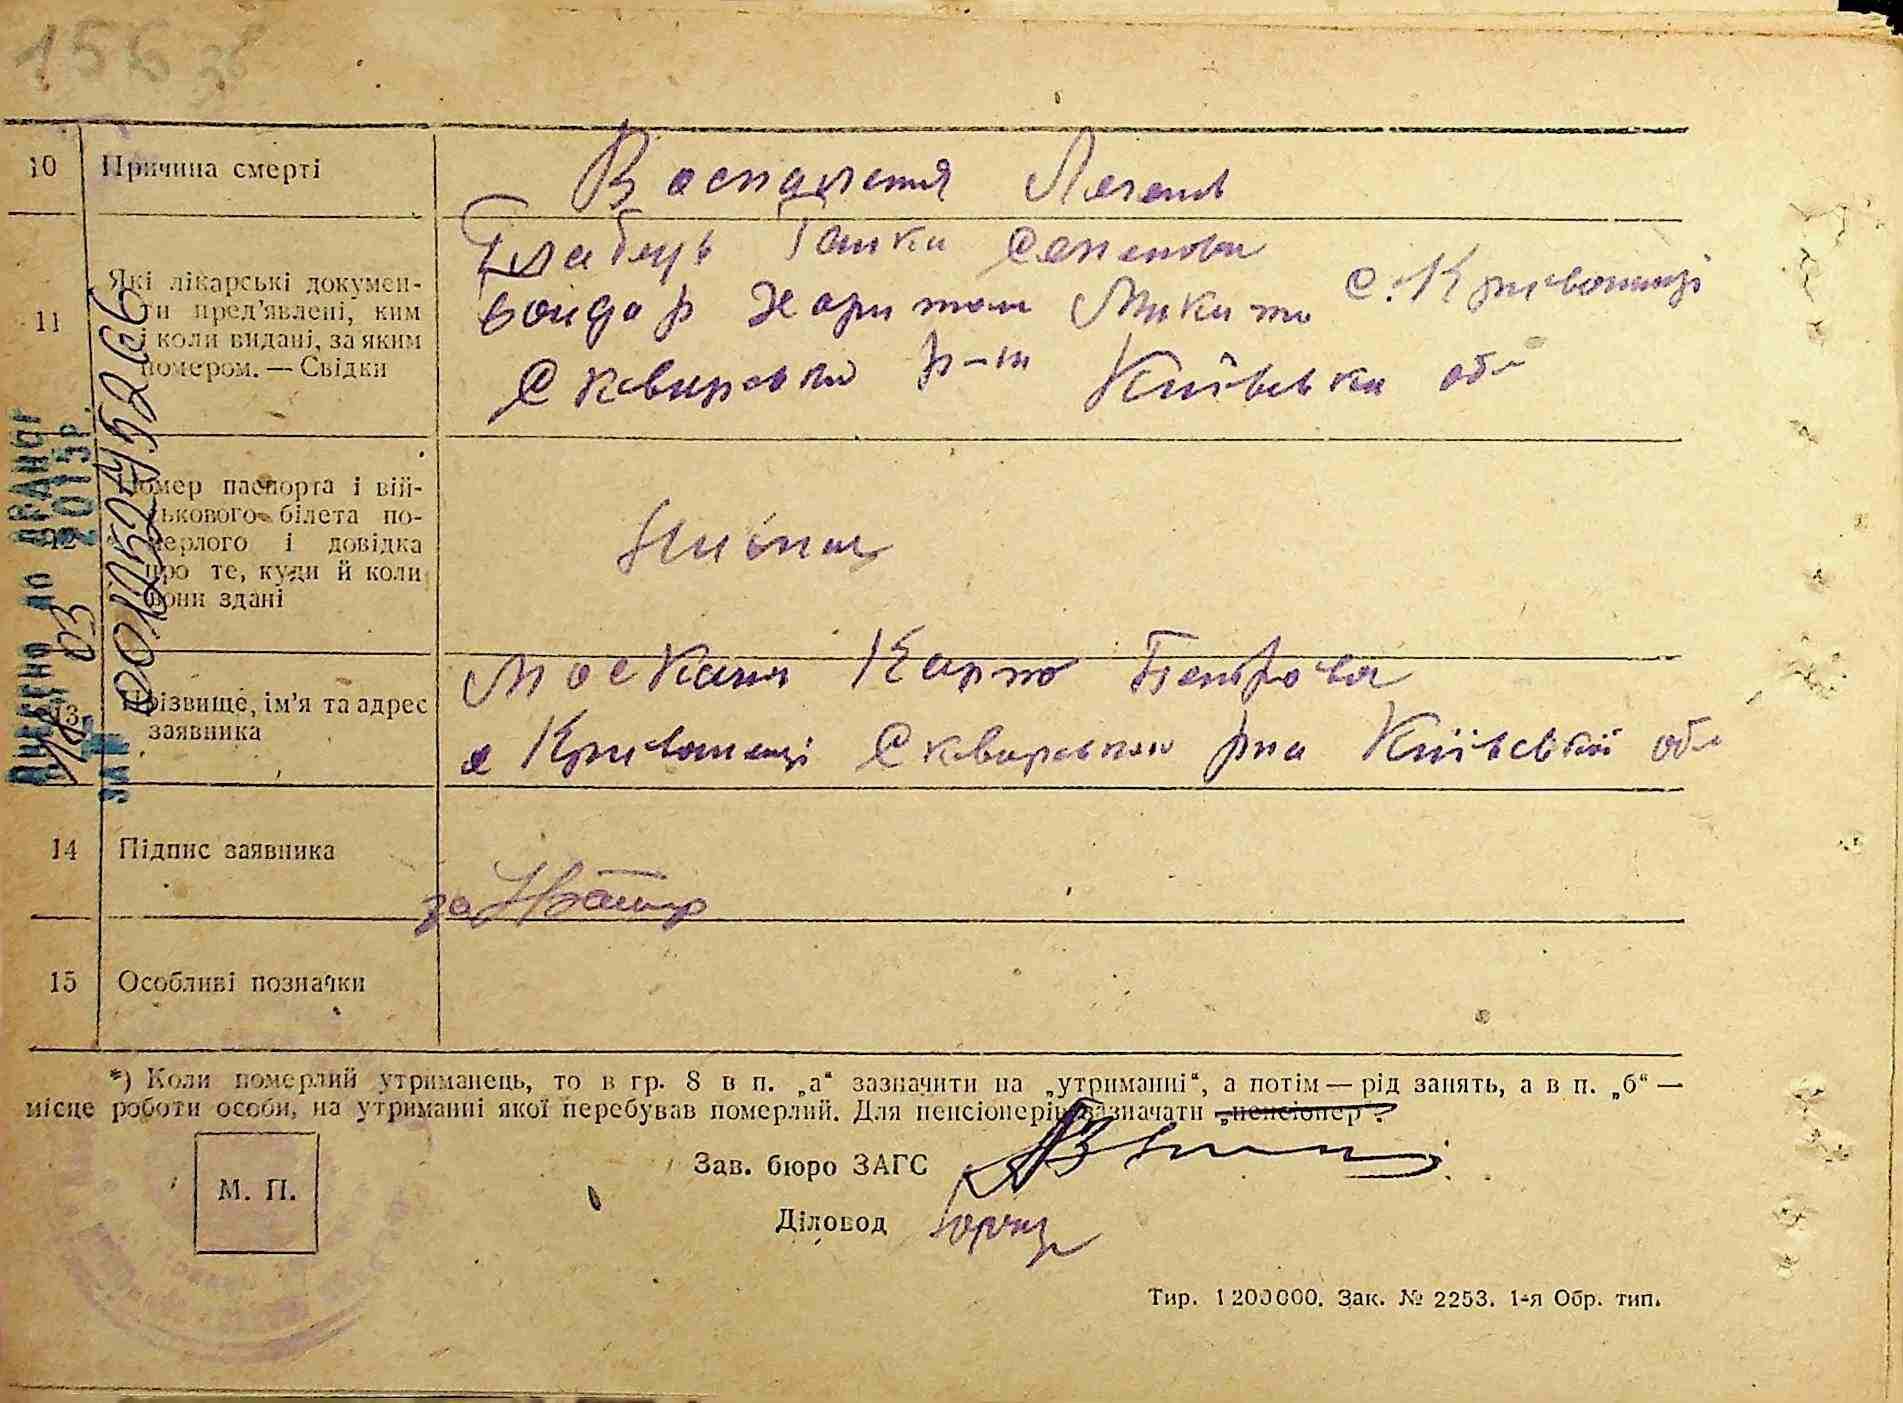 156 зв
10 Причина смерті
Воспаления Легень
11 Які лікарські докумен-
ти пред'явлені, ким
і коли видані, за яким
номером. — Свідки
Ганки Семенови
бондар Харитон Микити с. Кривошиїнці
Сквирськи р-н Київськи обл
12 Номер паспорта і вій-
ськового білета по-
мерлого і довідка
про те, куди й коли
вони здані
13 Прізвище, ім'я та адрес
заявника
Москаля Карпо Петрова
с Кривошеінці Сквирськи рна Київській обл
14 Підпис заявника
за
15 Особливі позначки
*) Коли померлий утриманець, то в гр. 8 в п. „а“ зазначити на „утриманні“, а потім — рід занять, а в п. „б“ —
місце роботи особи, на утриманні якої перебував померлий. Для пенсіонерів зазначати „пенсіонер“.
М. П.
Зав. бюро ЗАГС
Діловод
Тир. 1200000. Зак. № 2253. 1-я Обр. тип.
Внесено до ДРАЦСГ
18 03 2015р.
за №
0015275266